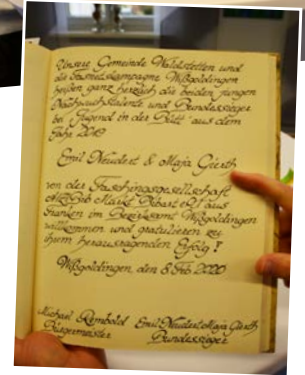 Unsere Gemeinde Waldstetten und
die Faschnetskampagne Wißgoldingen
heißen ganz herzlich die beiden jungen
Nachwuchstalente und Bundessieger
bei "Jugend in der Bütt" aus dem
Jahr 2019
Emil Neudert & Maja Gierth
von der Faschingsgesellschaft
Markt Bibart aus
Franken im Bezirksamt Wißgoldingen
willkommen und gratulieren zu
ihrem herausragenden Erfolg!
Wißgoldingen, den 8. Feb. 2020
Michael Rembold Emil Neudert, Maja Gierth
Bürgermeister Bundessieger